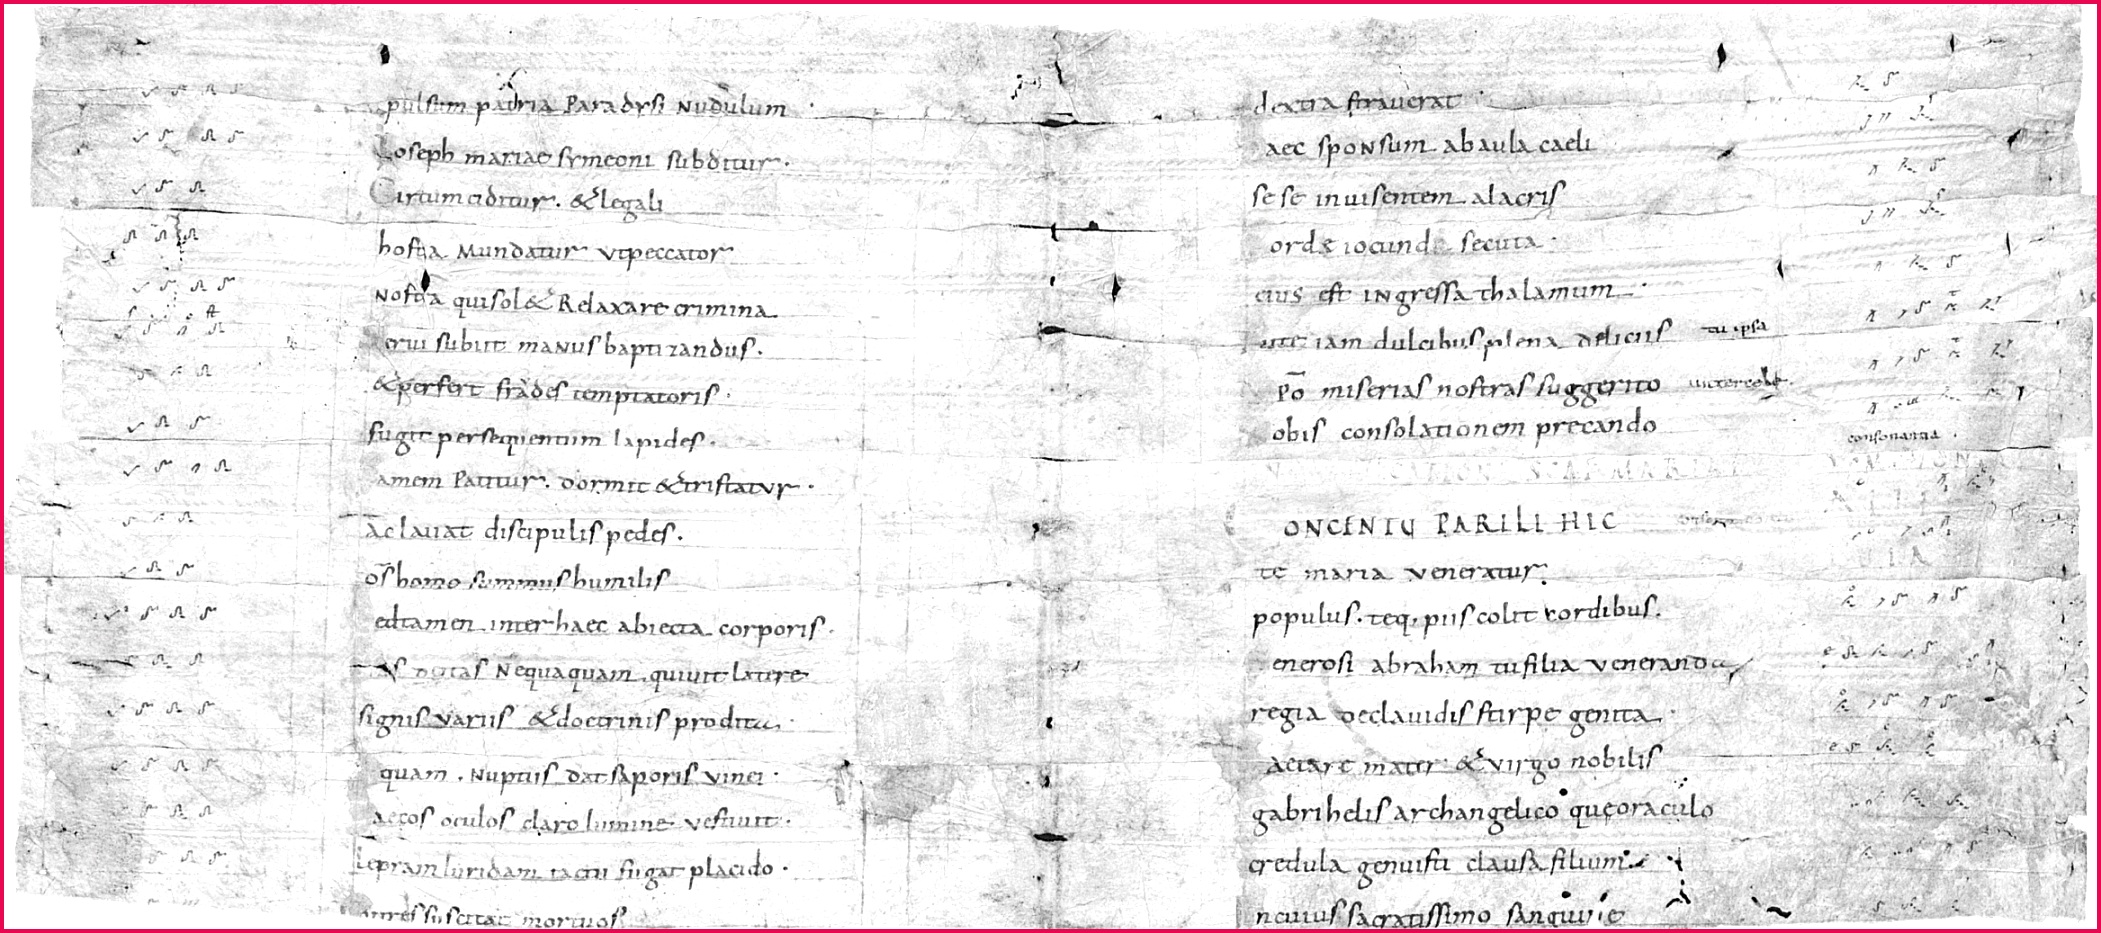 pulsum patria Paradysi Nudulum
Ioseph mariae symeoni subditur.
Circumciditur. & legali
hostia Mundatur Vt peccator
Nostra qui sol& Relaxare crimina
erui subiit manus baptizandus.
& perfert frades temptatoris.
fugit persequentum lapides.
amem Patitur. dormit & tristatur.
Ac lauat discipulis pedes.
os homo summus humilis
ed tamen inter haec abiecta corporis.
Nequaquam quiuit latere
signis variis & doctrinis prodita.
quam. Nuptiis dat saporis vinei.
aecos oculos claro lumine vestiuit.
Lepram luridam tactu fugat placido.
putres suscitat mortuos.
dextra strauerat
aec sponsum ab aula caeli
se se inuisentem alacris
ord& iocund secuta.
eius est ingressa thalamum.
ute iam dulcibus plena deliciis tu ipsa
Pō miserias nostras suggerito
obis consolationem precando
consonantia.
SCAE MARIAE
ONCENTU PARILI HIC
te maria veneratur.
populus. teq. piis colit cordibus.
enerosi abraham tu filia veneranda
regia de dauidis stirpe genita.
actare mater & virgo nobilis
gabrihelis archangelico quę oraculo
credula genuisti clausa filium.
n cuius sacratissimo sanguine